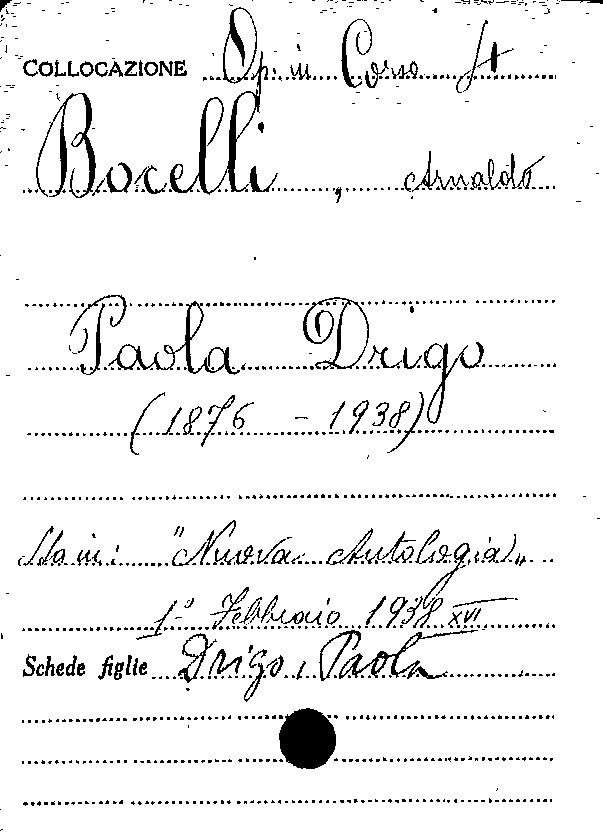 COLLOCAZIONE Op. in Corso St
Bocelli, Arnaldo
Paola Drigo
(1876 - 1938)
Sta in: "Nuova Antologia„
1º Febbraio 1938 XVI
Schede figlie Drigo, Paola